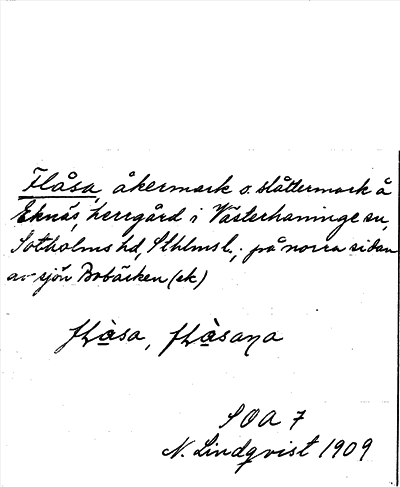 Flåsa, åkermark o. slåttermark å
Eknäs, herrgård i Västerhaninge sn,
Sotholms hd, Sthlms l., på norra sidan
av sjön Bobäcken (ek)
flåsa, flåsana
SOA 7
N. Lindqvist 1909